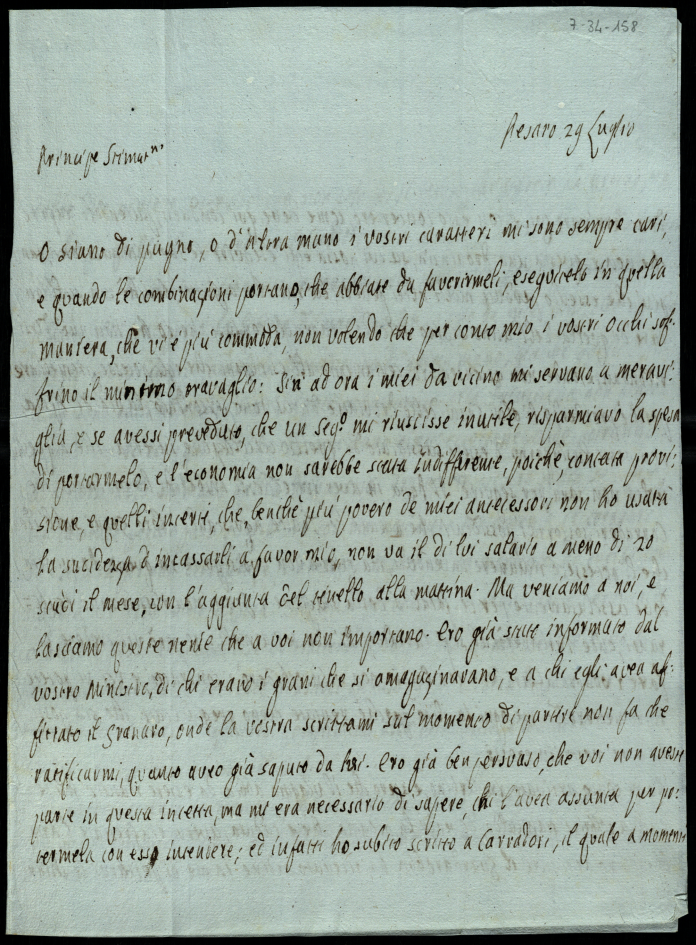 7-34-158
Pesaro 29 Luglio
Principe Stimat.mo
O siano di pugno, o d'altra mano i vostri caratteri mi sono sempre cari,
e quando le combinazioni portano, che abbiate da favorirmeli, eseguitelo in quella
maniera, che vi è più commoda, non volendo che per conto mio i vostri occhi sof-
frino il minimo travaglio: Sin ad ora i miei da vicino mi servano a meravi-
glia, e se avessi preveduto, che un Seg.o mi riuscisse inutile, risparmiavo la spesa
di portarmelo, e l'economia non sarebbe stata indifferente, poichè, contata provi-
sione, e quelli incerti, che, benchè più povero de miei antecessori non ho usata
la sucidezza d'incassarli a favor mio, non va il di lui salario a meno di 20
scudi il mese, con l'aggiunta del tinello alla matina. Ma veniamo a noi, e
lasciamo queste nenie che a voi non importano. Ero già stato informato dal
vostro Ministro, di chi erano i grani che si amagazinavano, e a chi egli avea af-
fittato il granaro, onde la vostra scrittami sul momento di partire non fa che
ratificarmi, quanto aveo già saputo da lui. Ero già ben persuaso, che voi non aveste
parte in questa incetta, ma mi era necessario di sapere, chi l'avea assunta per po-
termela con esso intendere; ed infatti ho subito scritto a Carradori, il quale a momenti